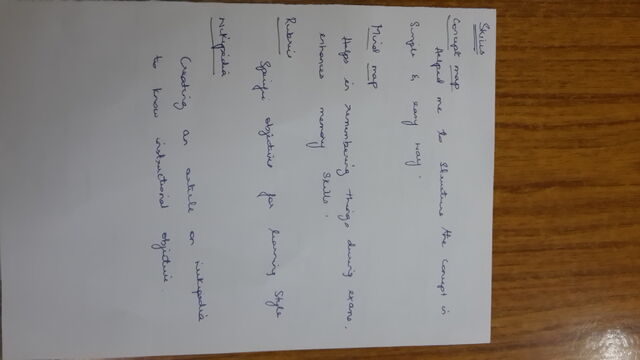 Skills
Concept map
Helped me to Structure the concept in
Simple & easy way.
Mind map
Helps in remembering things during exams.
enhances memory Skills.
Rubric
Specific objectives for learning Style
Wikipedia
Creating an article on wikipedia
to know instructional objective.